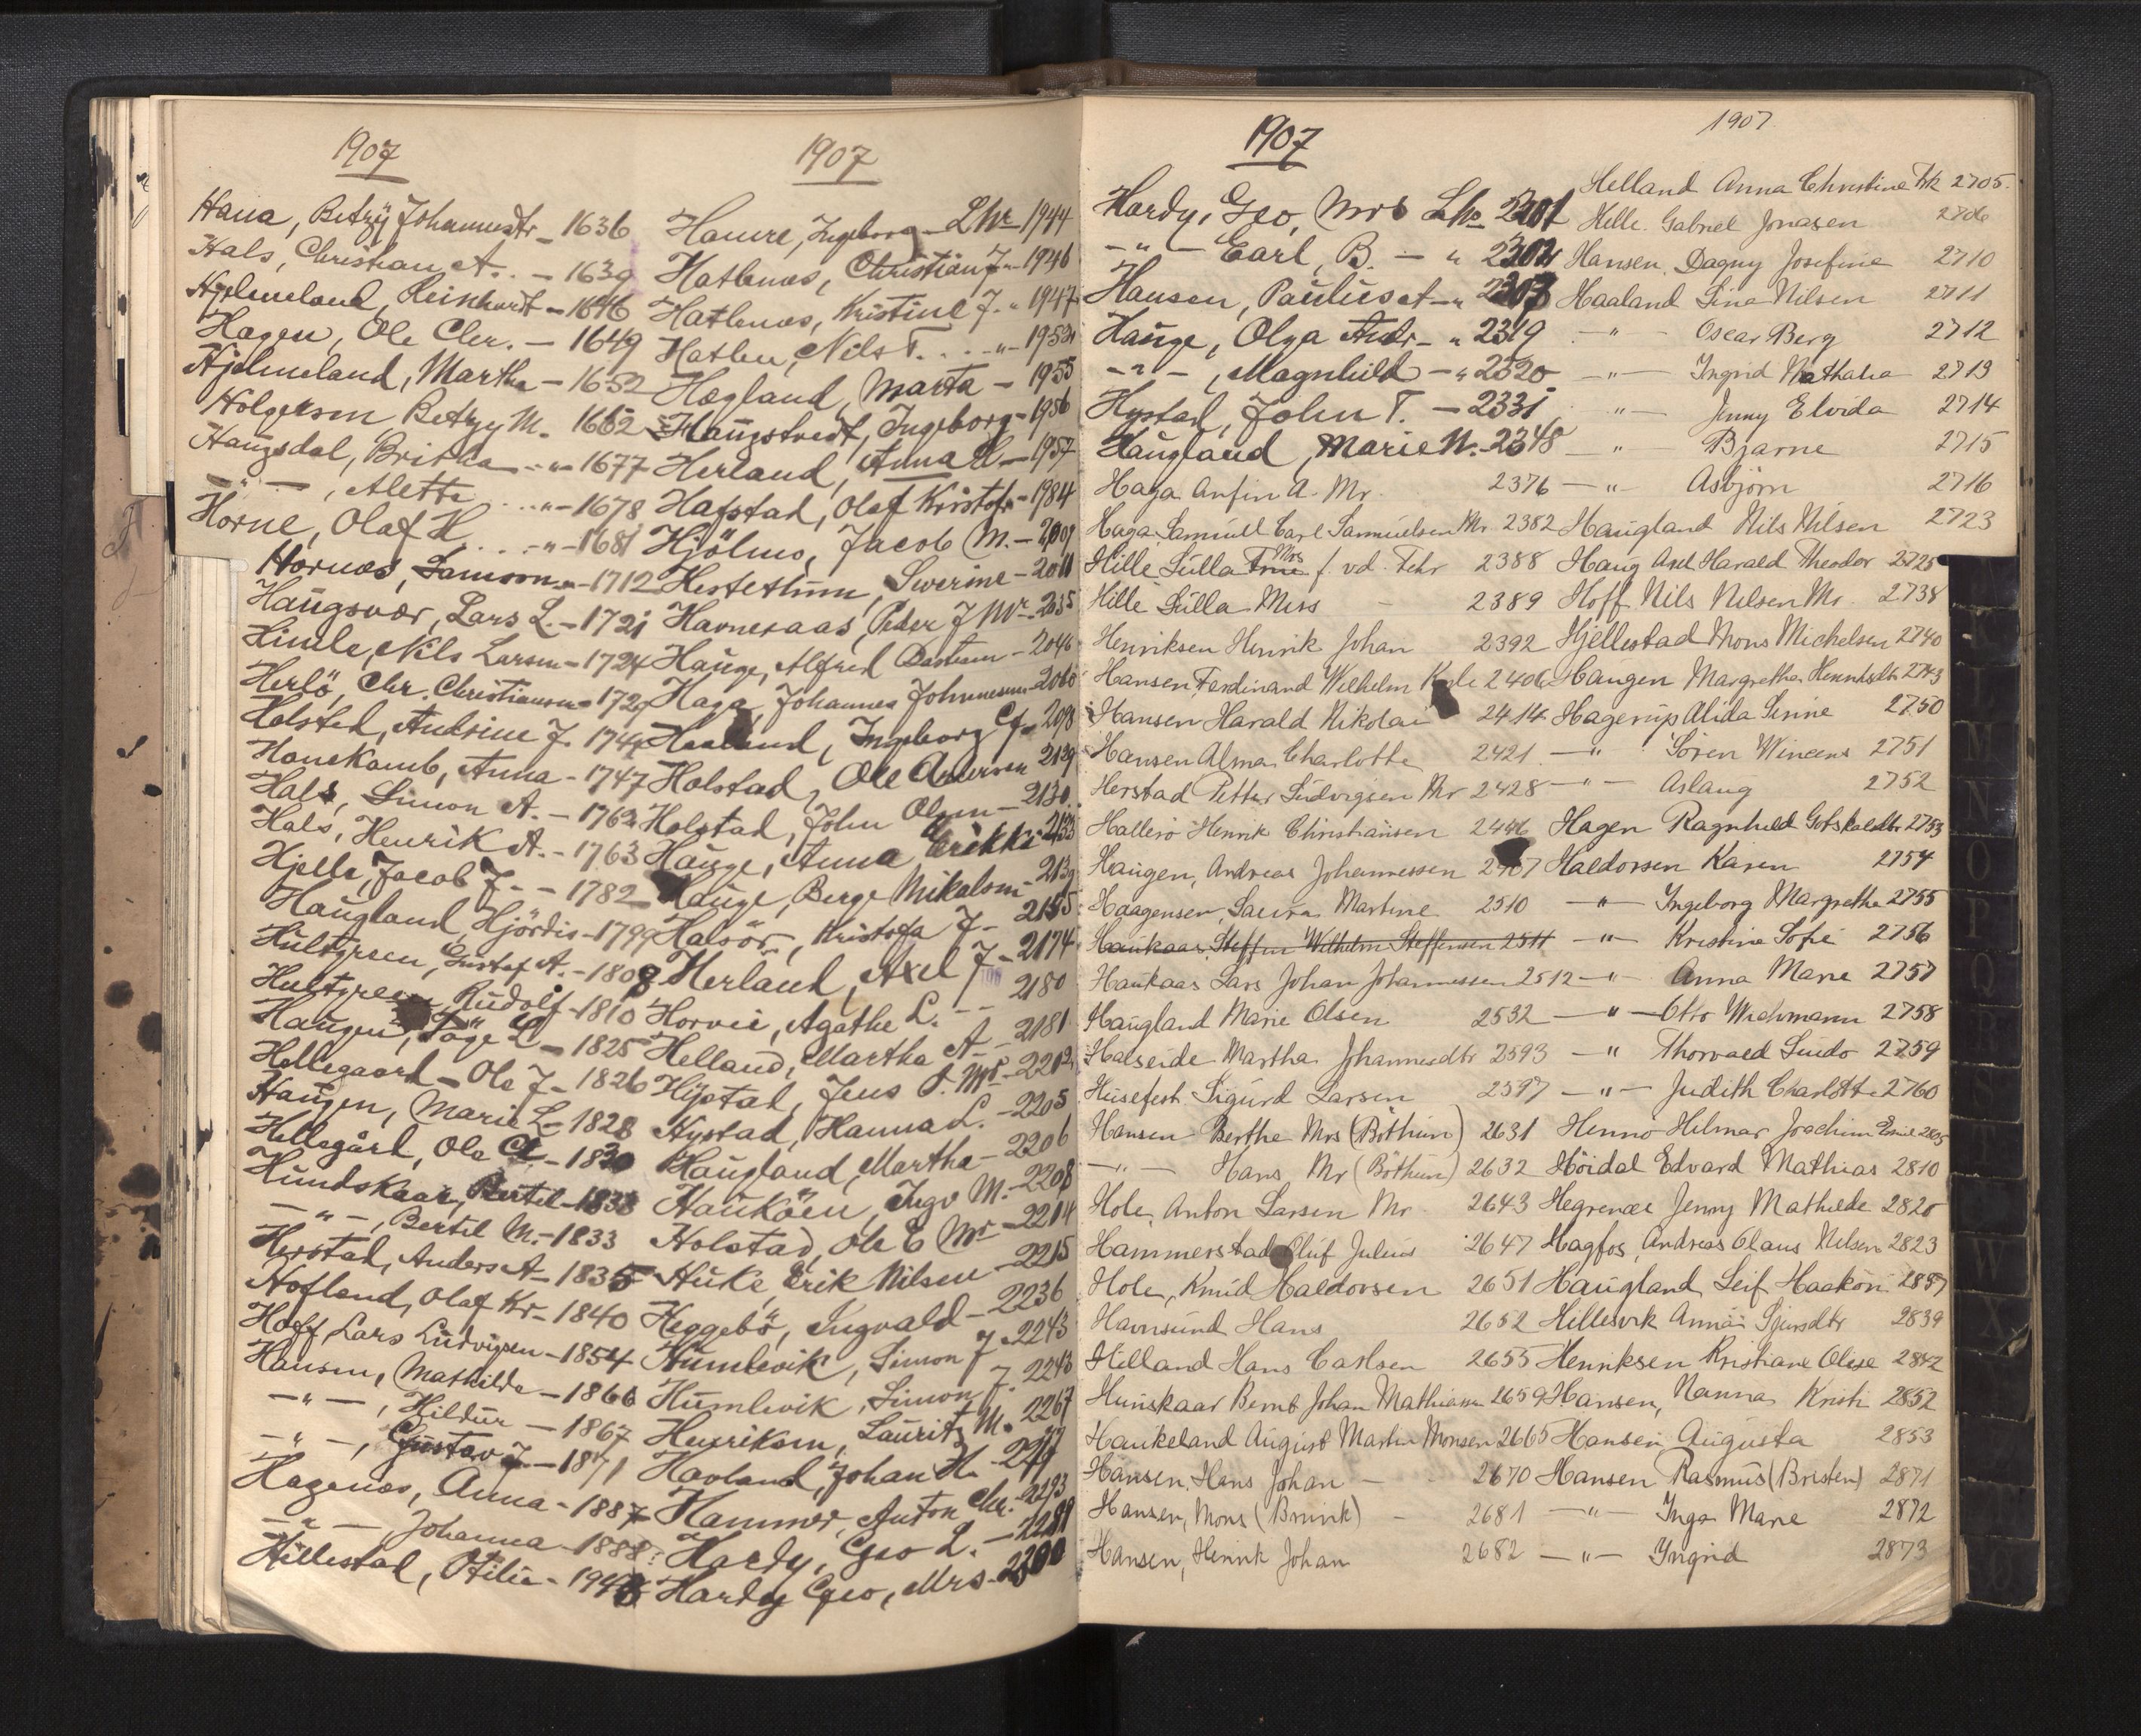 1907
Hana, Betzÿ Johannesdtr - 1636
Hals, Christian A. - 1639
Hjelmeland, Reinhardt - 1646
Hagen, Ole Chr. - 1649
Hjelmeland, Martha - 1652
Holgersen Betzy M. 1662
Haugsdal, Britha - " - 1677
- " - , Alette - " - 1678
Horne, Olaf H. - " - 1681
Hornæs, Samson - 1712
Haugsvær, Lars L. - 1721
Hinde, Nils Larsen - 1724
Herlö, Chr. Christiansen - 1729
Holsted, Andrine J. 1744
Hanekamb, Anna - 1747
Hals, Simon A. - 1762
Hals, Henrik A. - 1763
Hjelle, Jacob J. - 1782
Haugland Hjördis - 1799
Hultgreen, Gustaf A. - 1808
Hultgreen Rudolf - 1810
Haugen, - 1825
Hellegaard - Ole J - 1826
Haugen, Marie L - 1828
Hellegård, Ole - 1830
Hundskaar, Bertel - 1833
- " - , Bertil M. - 1833
Herstad, Anders A - 1835
Hofland, Olaf Kr. - 1840
Hoff Lars Ludvigsen - 1854
Hansen, Mathilde - 1866
- " - , Hildur - 1867
- " - , Gustav J - 1871
Hagenæs, Anna - 1887
- " - Johanna - 1888
Hillestad, Otilie -
1907
Haure, Ingeborg - Lhr - 1944
Hatlenæs, Christian J - 1946
Hatlenæs, Kristine J. " 1947
Hatlen, Nils T. - " -
Hægland, Marta - 1955
Haugstvedt, Ingeborg - 1956
Herland, Anna - 1957
Hafstad, Olaf Kristofr - 1984
Hjölmo, Jacob M. - 2009
Hestethun, Severine - 2011
Havneraas, Peder J Mr - 2035
Hauge, Alfred - 2046
Haga, Johannes Johannesen 2060
Haaland, Ingeborg 2098
Holstad, Ole Andersen 2129
Holstad, John Olsen - 2130
Hauge, Anna
Hauge, Berge Mikalsen
Halsör, Kristofa J - 2155
Herland, Axel J - 2174
Horvei, Agathe L. - 2180
Helland, Martha A - 2181
Hystad, Jens - 2202
Hystad, Hanna L. - 2205
Haugland, Martha - 2206
Haukåen, Ingv M. - 2208
Holstad, Ole E Mr - 2214
Huke, Erik Nilsen - 2215
Heggebö, Ingvald - 2236
Humlevik, Simon J - 2243
Humlevik, Simon J. 2243
Henriksen, Lauritz M. 2267
Havland, Johan H.
Hammer, Anton Chr. -
Hardy, Geo L. -
Hardy Geo, Mrs - 2300
1907
Hardy, Geo, Mrs Lhr 2301
- " - Earl, B. - " 2302
Hansen, Paulus A - " 2303
Hauge, Olga Andr - " 2319
- " - , Magnhild - " 2320
Hystad, John T. - 2331
Haugland, Marie N. - 2348
Haga Anfin A. Mr. 2376
Haga Samuel Carl Samuelsen Mr 2382
Hille Sulla Mrs f. vd. Fehr 2388
Hille Sulla Miss - 2389
Henriksen Henrik Johan 2392
Hansen Ferdinand Wilhelm 2406
Hansen Harald Nikolai 2414
Hansen Alma Charlotte 2421
Herstad Petter Ludvigsen Mr 2428
Hallerö Henrik Christiansen 2446
Haugen, Andreas Johannessen
Haagensen, Laura Martine 2510
Haukaas, Steffen Wilhelm Steffensen 2511
Haukaas Lars Johan Johannessen 2512
Haugland Marie Olsen 2532
Halseide Martha Johannesdtr 2593
Husefest Sigurd Larsen 2597
Hansen Berthe Mrs (Böthun) 2631
- " - Hans Mr (Böthun) 2632
Hole, Anton Larsen Mr 2643
Hammerstad Oluf Julius 2647
Hole, Knud Haldorsen 2651
Havnsund Hans 2652
Helland Hans Carlsen 2655
Hunskaar Bernt Johan Mathiasen 2659
Haukeland August Martin Monsen 2665
Hansen, Hans Johan - 2670
Hansen, Mons (Brunk) - 2681
Hansen, Henrik Johan 2682
1907
Helland Anna Christine Frk 2705.
Helle Gabriel Jonasen 2706
Hansen, Dagny Josefine 2710
Haaland Sina Nilsen 2711
- " - Oscar Berg 2712
- " - Ingrid Mathalia 2713
- " - Jenny Elvida 2714
- " - Bjarne 2715
- " - Asbjörn 2716
Haugland Nils Nilsen 2723
Haug Axel Harald Theodor 2725
Hoff Nils Nilsen Mr. 2738
Hjellestad Mons Michelsen 2740
Haugen Margrethe 2743
Hagerup Alida Sinne 2750
- " - Sören Wincens 2751
- " - Aslaug 2752
Hagen Ragnhild Gotskaldtr 2753
Haldorsen Karen 2754
- " - Ingeborg Margrethe 2755
- " - Kristine Sofie 2756
- " - Anna Marie 2757
- " - Otto Wichmann 2758
- " Thorvald Lindo 2759
- " - Judith Charlotte 2760
Henno Hilmar Joachim 2805
Höidal Edvard Mathias 2810
Hegrenæs Jenny Mathilde 2820
Hagfos, Andreas Olaus Nilsen 2823
Haugland Leif Haakon 2837
Hillesvik Anna Sjursdtr 2839
Henriksen Kristiane Olise 2842
Hansen, Nanna Kristi 2852
Hansen Augusta 2853
Hansen Rasmus (Bristen) 2871
- " - Inga Marie 2872
- " - Ingrid 2873